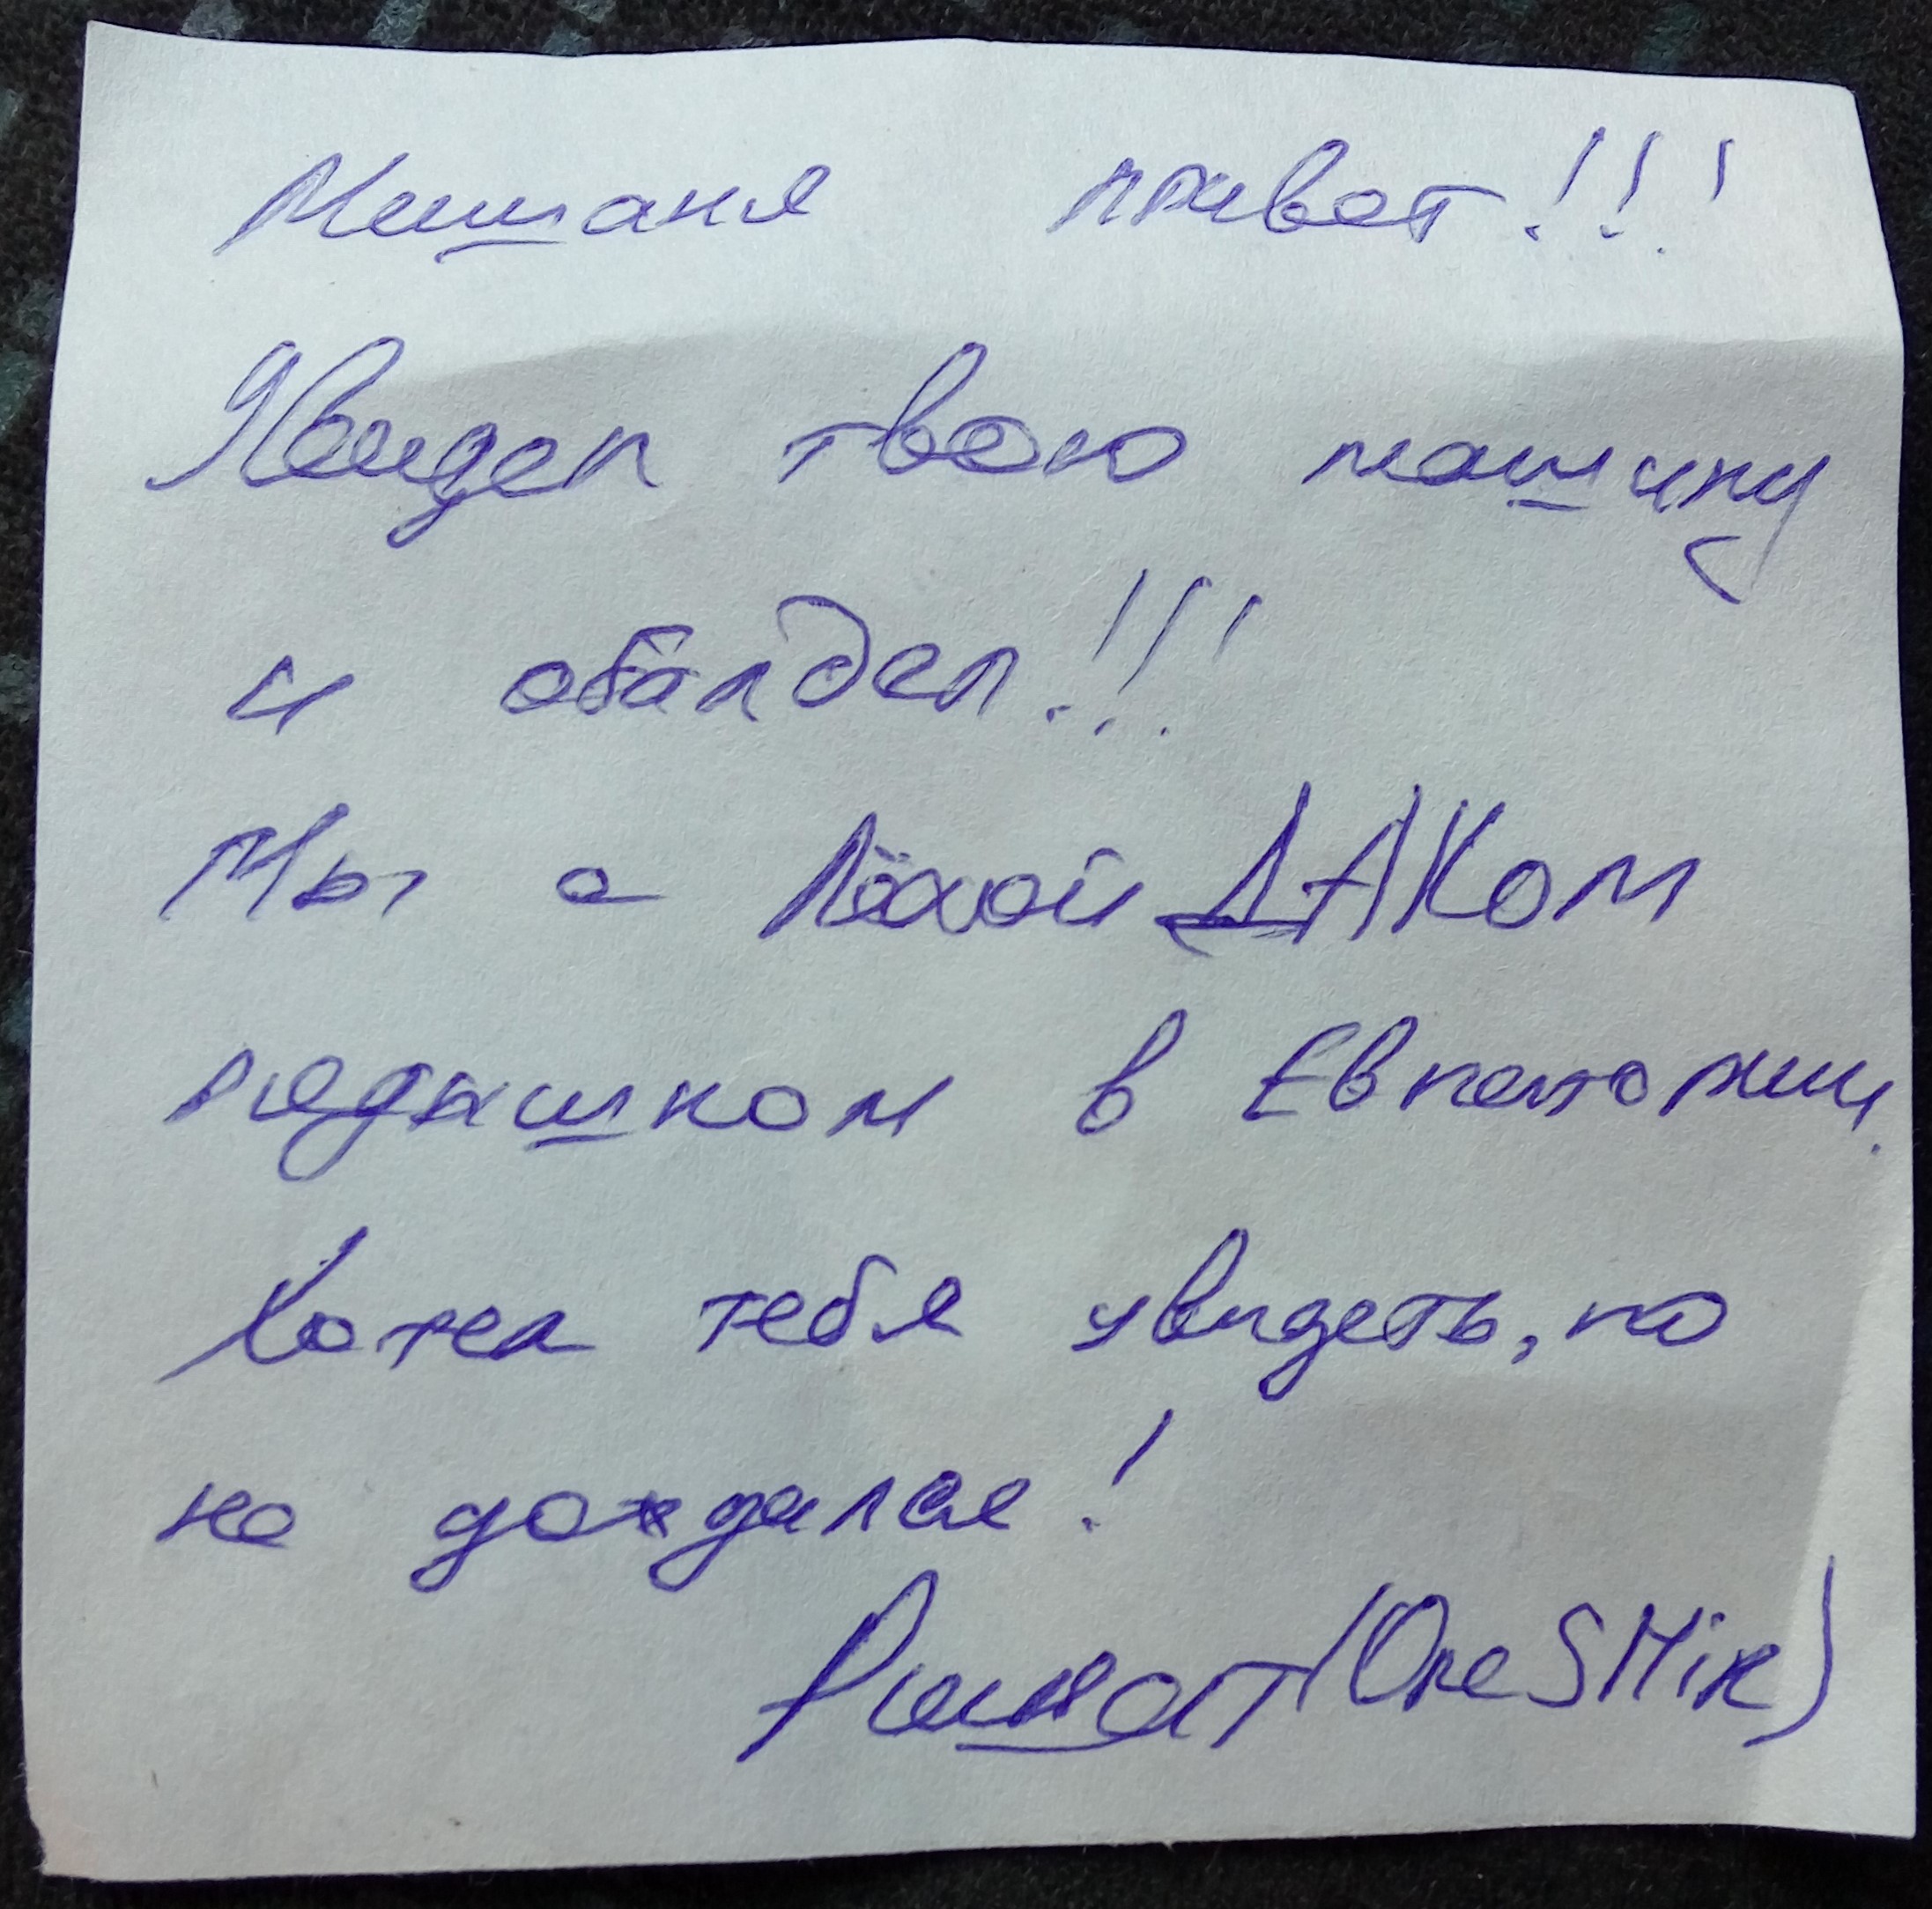 Мишаня привет!!!
Увидел твою машину
и обалдел!!!
Мы с Лёхой ДАКом
рядышком в Евпатории.
Хотел тебя увидеть, но
не дождался!
Ришат (OneSMik)